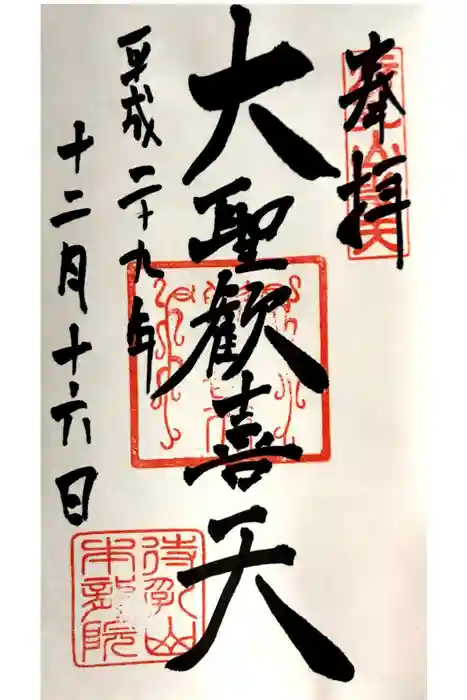 奉拝
大聖歓喜天
平成二十九年
十二月十六日
待乳山
本龍院